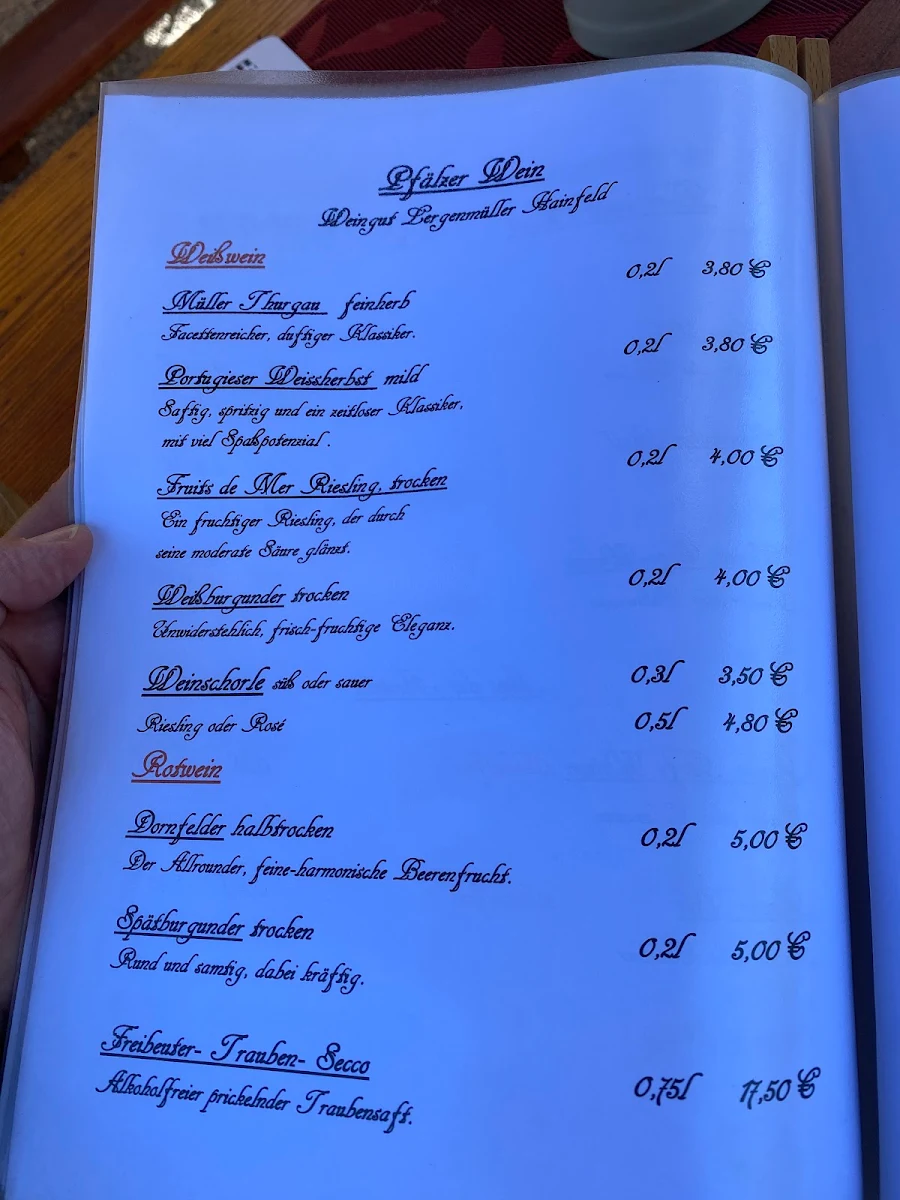 Pfälzer Wein
Weingut Lergenmüller Hainfeld
Weißwein
0,2l 3,80 €
Müller Thurgau feinherb
Facettenreicher, duftiger Klassiker.
0,2l 3,80 €
Portugieser Weissherbst mild
Saftig, spritzig und ein zeitloser Klassiker,
mit viel Spaßpotenzial .
0,2l 4,00 €
Fruits de Mer Riesling, trocken
Ein fruchtiger Riesling, der durch
seine moderate Säure glänzt.
0,2l 4,00 €
Weißburgunder trocken
Unwiderstehlich, frisch-fruchtige Eleganz.
Weinschorle süß oder sauer 0,3l 3,50 €
Riesling oder Rosé 0,5l 4,80 €
Rotwein
Dornfelder halbtrocken 0,2l 5,00 €
Der Allrounder, feine-harmonische Beerenfrucht.
Spätburgunder trocken 0,2l 5,00 €
Rund und samtig, dabei kräftig.
Freibeuter- Trauben- Secco
Alkoholfreier prickelnder Traubensaft. 0,75l 17,50 €